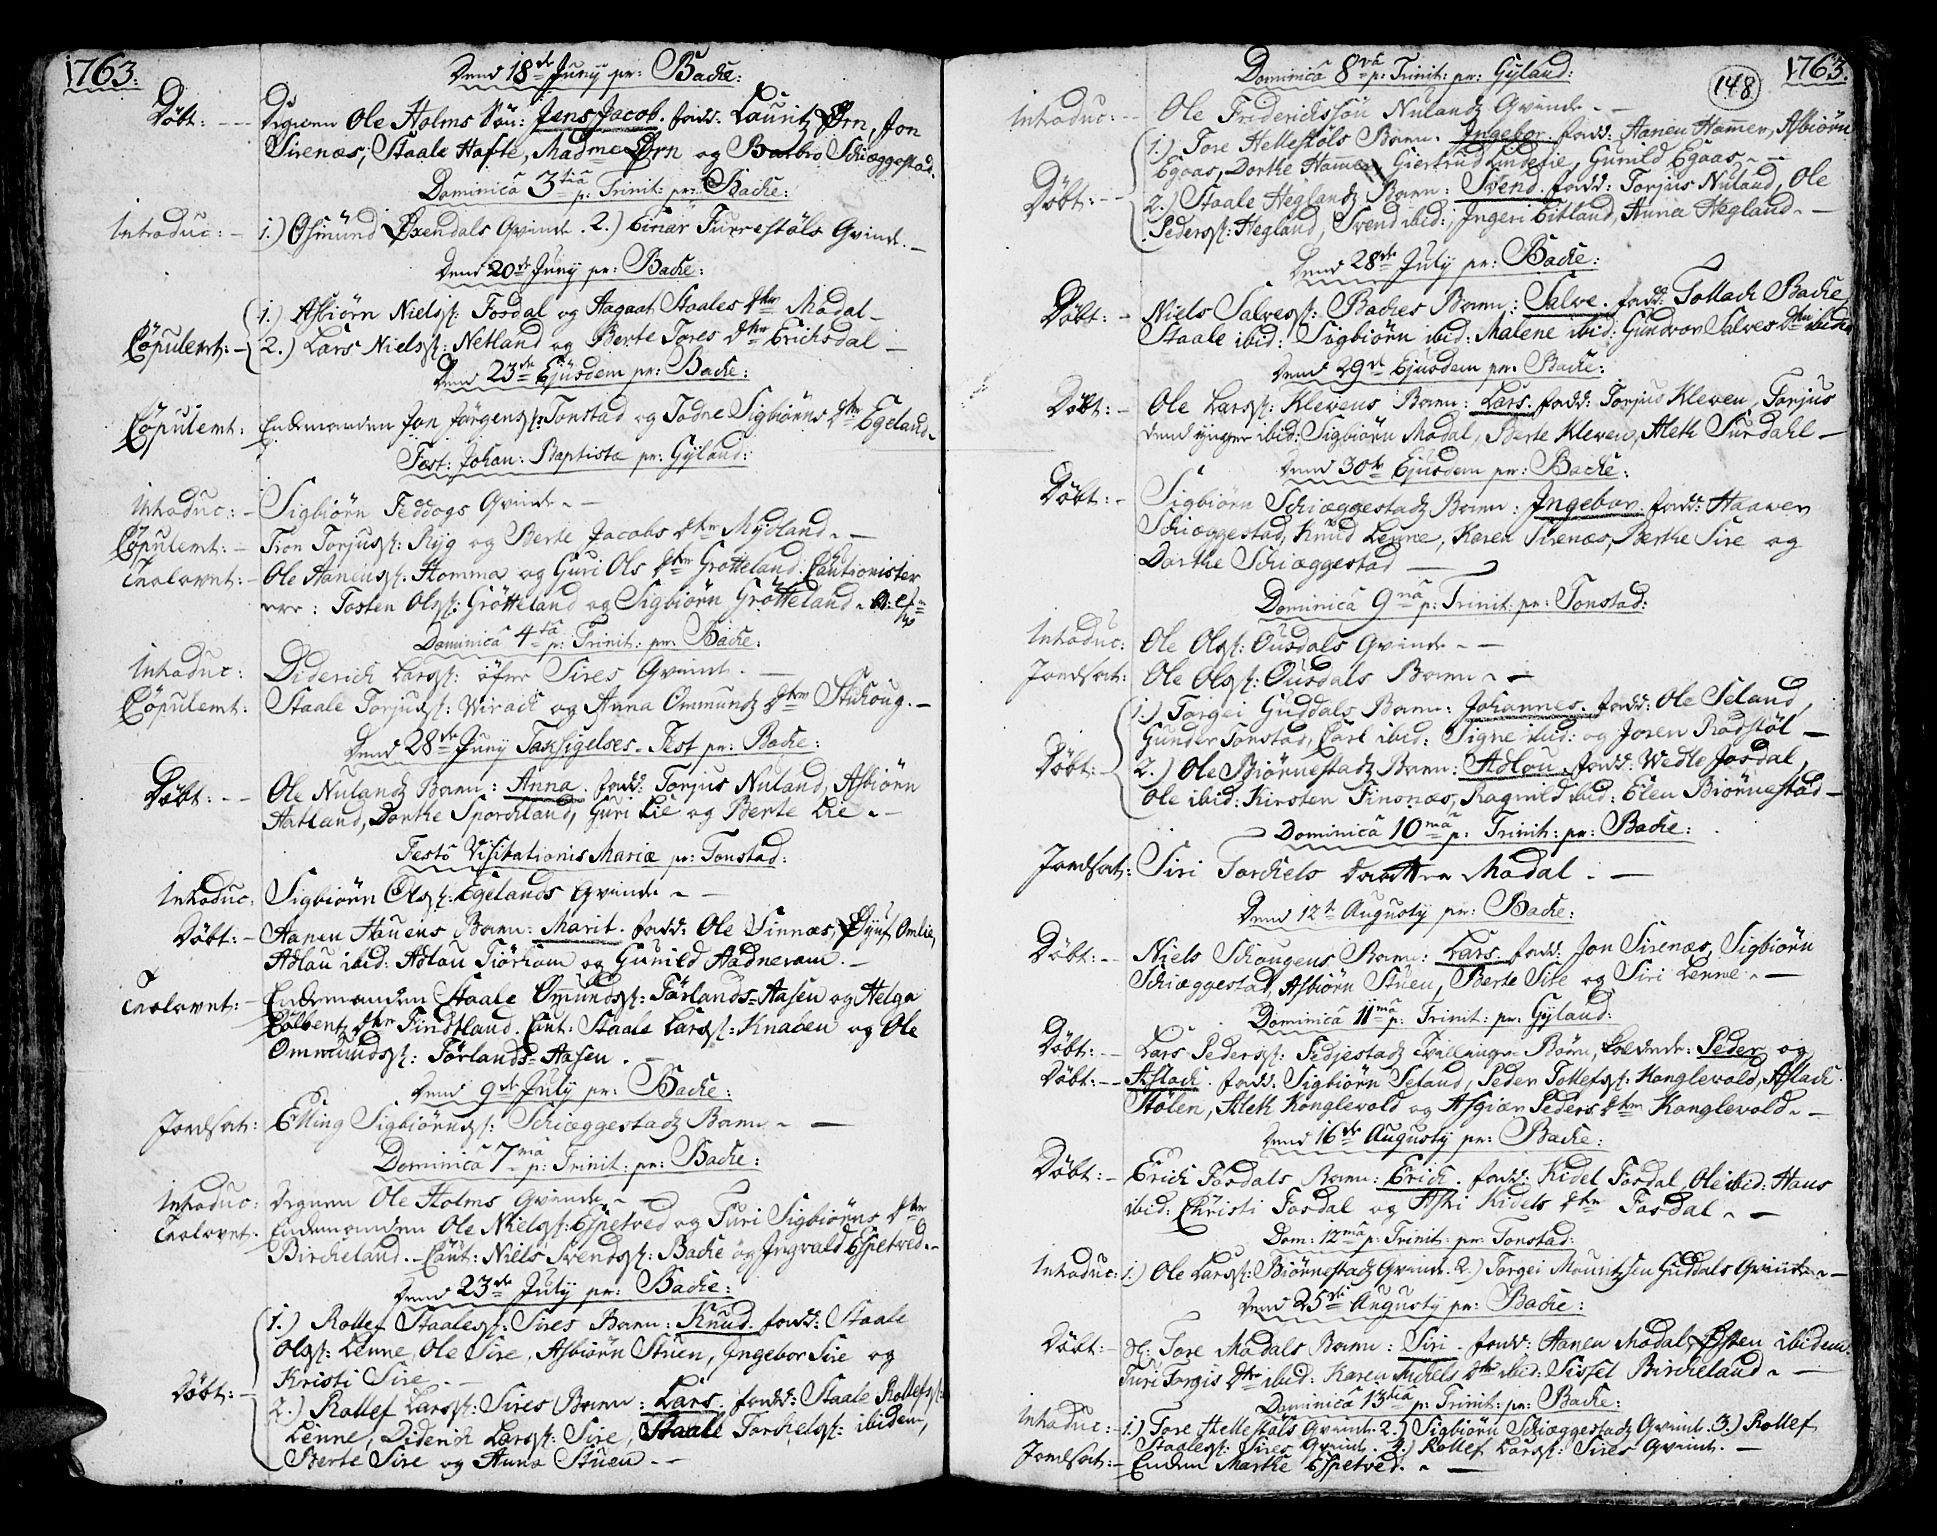 1763.
Dend 18de Junÿ pr: Backe:
Döbt: -- Degnen Ole Holms Sön: Jens Jacob. fadd: Lauritz Ørn, Jon
Sirenæs, Staale Hafte, Madme Ørn og Barbro Schiæggestad.
Dominica 3tia p: Trinit: pr: Backe:
Introduc: - 1.) Osmund Øxendals Qvinde. 2.) Giriar Turrestöls Qvinde. -
Dend 20de Junÿ pr: Backe:
Copulerert: - 1.) Asbiörn Nielss: Josdal og Aagaat Staales dter Modal -
2.) Lars Nielss: Netland og Berte Tores dter Erichsdal -
Dend 23de Ejusdem pr: Backe:
Copulert: Enkemanden Jon Jörgenss: Tonstad og Todne Sigbiörns dter Egeland -
Fest: Johan: Baptista pr: Gÿland:
Introduc: - Sigbiörn Feddogs Qvinde. -
Copulert: - Tron Torjuss: Rÿg og Berte Jacobs dter Mÿdland. -
Trolovet: - Ole Aanenss: Homma og Guri Ols dter Grötteland. Cautionister
ere: Tosten Olss: Grötteland og Sigbiörn Grötteland.
Dominica 4ta p: Trinit: pr: Backe:
Introduc: Diderich Larss: öfre Sires Qvinde. -
Copulert: Staale Torjuss: Wirach og Anna Ommundz dter Skiboug. -
Dend 28de Junÿ Taksigelses-Fest pr: Backe:
Döbt: -- Ole Nulandz Barn: Anna. fadd: Torjus Nuland, Asbiörn
Aatland, Dorthe Sporchland, Guri Lie og Berte Lie. -
Festo Visitationis Mariæ pr: Tonstad:
Introduc: Sigbiörn Olss: Egelands Qvinde -
Döbt: - Aanen Hauens Barn: Marit. fadd: Ole Sinnæs, Omlie,
Adlau ibid: Adlau Tiörhom og Gunild Aadneram. -
Trolovet: - Enkemanden Staale Ommundss: Törlands-Aasen og Helga
Colbentz dter Findtland. Caut: Staale Larss: Knaben og Ole
Ommundss: Törlands-Aasen. -
Dend 9de Julÿ pr: Backe:
Jordsat: Elling Sigbiörnss: Schiæggestadz Barn -
Dominica 7ma p: Trinit: pr: Backe:
Introduc: Degnen Ole Holms Qvinde -
Trolovet. Enkemanden Ole Nielss: Espetved og Turi Sigbiörns dter
Bircheland. - Caut: Niels Svendss: Backe og Ingvald Espetved -
Dend 23de Julÿ pr: Backe:
1.) Rollef Staaless: Sires Barn: Knud. fadd: Staale
Olss: Lenne, Ole Sire, Asbiörn Stuen, Ingebor Sire og
Kristi Sire. -
Döbt: - 2.) Rollef Larss: Sires Barn: Lars. fadd: Staale Rollefss:
Lenne, Diderich Larss: Sire, Staale Torchelss: ibidem,
Berte Sire og Anna Stuen. -
148
1763.
Dominica 8va p: Trinit: pr: Gÿland:
Introduc: -- Ole Frederichssön Nulandz Qvinde. -
1.) Tore Hellestöls Barn. Ingebor. fadd: Aanen Hammer, Asbiörn
Egaas, Dorthe Hammer, Giertrud Lindefie, Gunild Egaas. -
Döbt: -- 2.) Staale Heglandz Barn: Svend. fadd: Torjus Nuland, Ole
Pederss: Hegland, Svend ibid:, Ingeri Eitland, Anna Hegland. -
Dend 28de Julÿ pr: Backe:
Döbt: - Niels Salvess: Backes Barn: Salve. fadd: Tollach Backe,
Staale ibid: Sigbiörn ibid: Malene ibid: Gundvor Salves dter ibidem
Dend 29de Ejusdem pr: Backe:
Döbt: - Ole Larss: Klevens Barn: Lars. fadd: Torjus Kleven, Torjus
dend ÿnger ibid: Sigbiörn Modal, Berte Kleven, Aleth Surdahl -
Dend 30te Ejusdem pr: Backe:
Döbt: - Sigbiörn Schiæggestadz Barn: Ingebor. fadd: Haaver
Schiæggestad, Knud Lenne, Karen Sirenæs, Berthe Sire og
Dorthe Schiæggestad -
Dominica 9na p: Trinit: pr: Tonstad:
Introduc: Ole Olss: Ousdals Qvinde -
Jordsat: Ole Olss: Ousdals Barn -
1.) Torgei Guddals Barn: Johannes. fadd: Ole Seland,
Gunder Tonstad, Carl ibid: Signe ibid: og Joren Rödstöl -
Döbt: - 2.) Ole Biörnestadz Barn: Adlou. fadd: Wedle Josdal,
Ole ibid: Kirsten Finsnæs, Ragnild ibid: Elen Biörnestad -
Dominica 10ma p: Trinit: pr: Backe:
Jordsat: Siri Torchels daatter Modal. -
Dend 12te Augustÿ pr: Backe:
Döbt: -- Niels Schougens Barn: Lars. fadd: Jon Sirenæs, Sigbiörn
Schiæggestad, Asbiörn Stuen, Berte Sire og Siri Lenne. -
Dominica 11ma p: Trinit: pr: Gÿland:
Döbt: -- Lars Pederss: Sedjestadz Tvillinge Börn, kaldede: Peder og
Döbt: -- Aslach. fadd: Sigbiörn Seland, Peder Tollefss: Konglevold, Aslach
Stölen, Aleth Konglevold og Asgier Peders dter Konglevold. -
Dend 16de Augustÿ pr: Backe:
Döbt: - Erich Josdals Barn: Erich. fadd: Kidel Josdal, Ole ibid: Hans
ibid: Christi Josdal og Aski Kidels dter Josdal -
Dom: 12ma p: Trinit: pr: Tonstad:
Introduc: 1.) Ole Larss: Biörnestadz Qvinde. 2.) Torgei Mouritzsen Guddals Qvinde -
Dend 25de Augustÿ pr: Backe:
Döbt: - Tore Modals Barn: Siri. fadd: Aanen Modal, Østen ibidem:
Turi Torgis dter ibid: Karen Nichels dter ibid: Sissel Bircheland -
Dominica 13tia p: Trinit: pr: Backe:
Introduc: 1.) Tore Hellestöls Qvinde. 2.) Sigbiörn Schiæggestadz Qvinde. 3.) Rollef
Staaless: Sires Qvinde. 4.) Rollef Larss: Sires Qvinde. -
Jordsat: - Enken Marthe Espetved. -